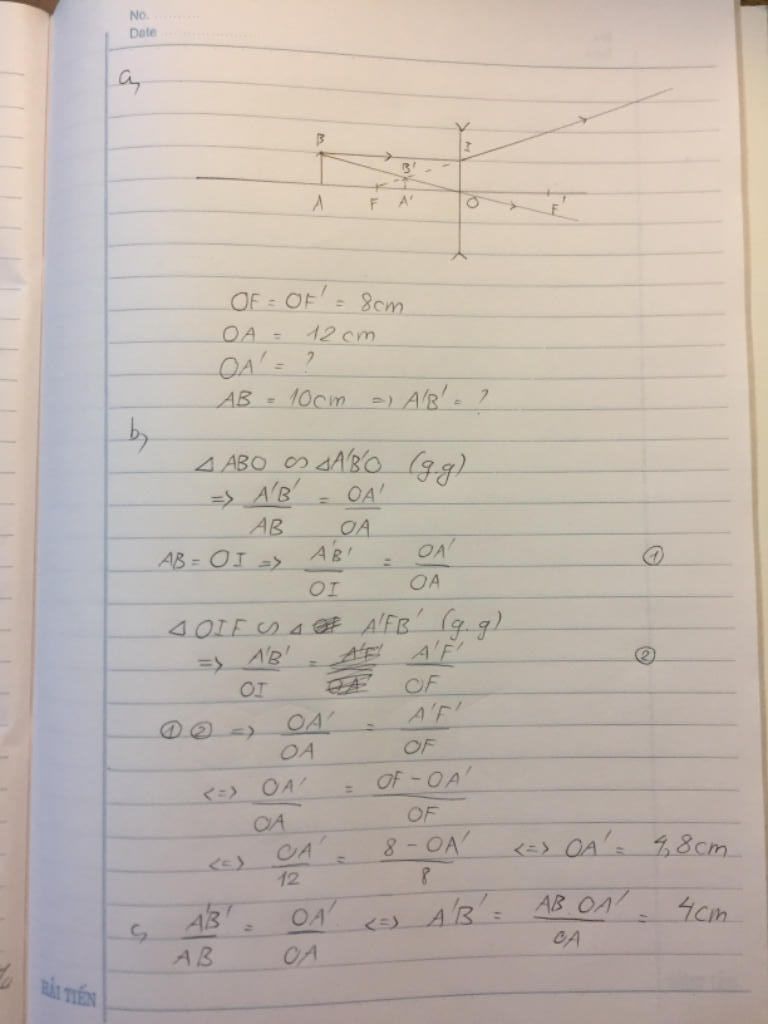 No. ..........
Date ....................
a,
B I
B'
A F A' O F'
OF = OF' = 8cm
OA = 12cm
OA' = ?
AB = 10cm => A'B' = ?
b,
△ABO ∽ △A'B'O (g.g)
=> A'B'/AB = OA'/OA
AB = OI => A'B'/OI = OA'/OA ①
△OIF ∽ △ A'FB' (g.g)
=> A'B'/OI = A'F'/OF ②
① ② => OA'/OA = A'F'/OF
<=> OA'/OA = OF - OA'/OF
<=> OA'/12 = 8 - OA'/8 <=> OA' = 4,8cm
c, A'B'/AB = OA'/OA <=> A'B' = AB OA'/OA = 4cm
HẢI TIẾN